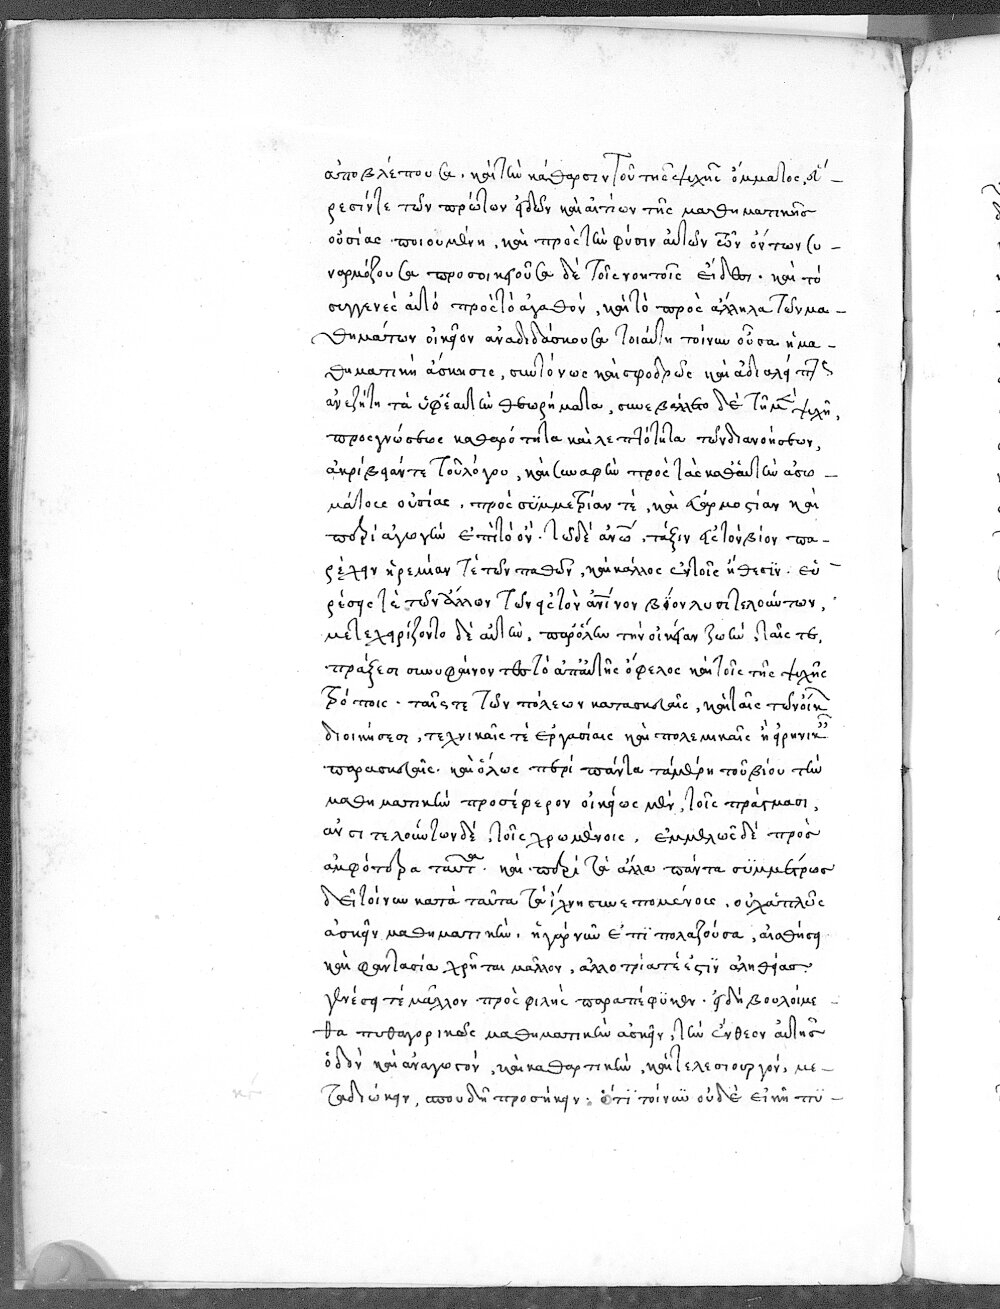 ἀποβλέπουσα, καὶ τὴν κάθαρσιν τοῦ τῆς ψυχῆς ὄμματος, εὕ-
ρεσίν τε τῶν πρώτων εἰδῶν καὶ αἰτίων τῆς μαθηματικῆς
οὐσίας ποιουμένη, καὶ πρὸς τὴν φύσιν αὐτῶν τῶν ὄντων συ-
ναρμόζουσα προσοικειοῦσα δὲ τοῖς νοητοῖς εἴδεσι. καὶ τὸ
συγγενὲς αὐτὸ πρὸς τὸ ἀγαθὸν, καὶ τὸ πρὸς ἄλληλα τῶν μα-
θημάτων οἰκεῖον ἀναδιδάσκουσα τοιαύτη τοίνυν οὖσα ἡ μα-
θηματικὴ ἄσκησις, συντόνως καὶ σφοδρῶς καὶ ἀδιαλείπτως
ἀνεζήτη τὰ ὑφ' ἑαυτὴν θεωρήματα, συνεβάλλετο δὲ τῇ μὲν ψυχῇ,
πρὸς γνώσεως καθαρότητα καὶ λεπτότητα τῶν διανοήσεων,
ἀκρίβειάν τε τοῦ λόγου, καὶ συναφὴν πρὸς τὰς καθ' αὑτὴν ἀσω-
μάτους οὐσίας, πρὸς συμμετρίαν τὲ, καὶ εὐαρμοστίαν καὶ
περιαγωγὴν ἐπὶ τὸ ὄν. τῷ δὲ ἀνθρώπῳ, τάξιν εἰς τὸν βίον πα-
ρέχειν ἠρεμίαν τὲ τῶν παθῶν, καὶ κάλλος ἐν τοῖς ἤθεσϊν. εὑ-
ρέσεις τὲ τῶν ἄλλων τῶν εἰς τὸν ἀνθρώπινον βίον λυσιτελούντων,
μετεχειρίζοντο δὲ αὐτὴν, παρ' ὅλην τὴν οἰκείαν ζωὴν, ταῖς τε,
πράξεσι συνυφαίνοντες τὸ ἀπ' αὐτῆς ὄφελος καὶ τοῖς τῆς ψυχῆς
τρόποις. ταῖς τε τῶν πόλεων κατασκευαῖς, καὶ ταῖς τῶν οἴκων
διοικήσεσι, τεχνικαῖς τὲ ἐργασίαις καὶ πολεμικαῖς ἢ εἰρηνικαῖς
παρασκευαῖς. καὶ ὅλως περὶ πάντα τὰ μέρη τοῦ βίου τὴν
μαθηματικὴν προσέφερον οἰκείως μὲν, τοῖς πράγμασι,
λυσιτελούντων δὲ, τοῖς χρωμένοις, ἐμμελῶς δὲ πρὸς
ἀμφότερα ταῦτα. καὶ περὶ τὰ ἄλλα πάντα συμμέτρως
δεῖ τοίνυν κατὰ ταῦτα τὰ ἴχνη συνεπομένοις, οὐχ ἁπλῶς
ἀσκεῖν μαθηματικὴν. ἡ γὰρ νῦν ἐπϊπολάζουσα, αἰσθήσει
καὶ φαντασία χρῆται μᾶλλον, ἀλλοτρία τέ ἐστϊν ἀληθείας
γενέσει τέ μᾶλλον προσφιλὴς παραπέφυκεν. εἰ δὴ βουλόμε-
θα πυθαγορικῶς μαθηματικὴν ἀσκεῖν, τὴν ἔνθεον αὐτῆς
ὁδὸν καὶ ἀναγωγὸν, καὶ καθαρτικὴν, καὶ τελεσιουργὸν, με-
ταδιώκειν, σπουδῇ προσήκει. ὅτϊ τοίνυν οὐδὲ εἰκῆ πυ-